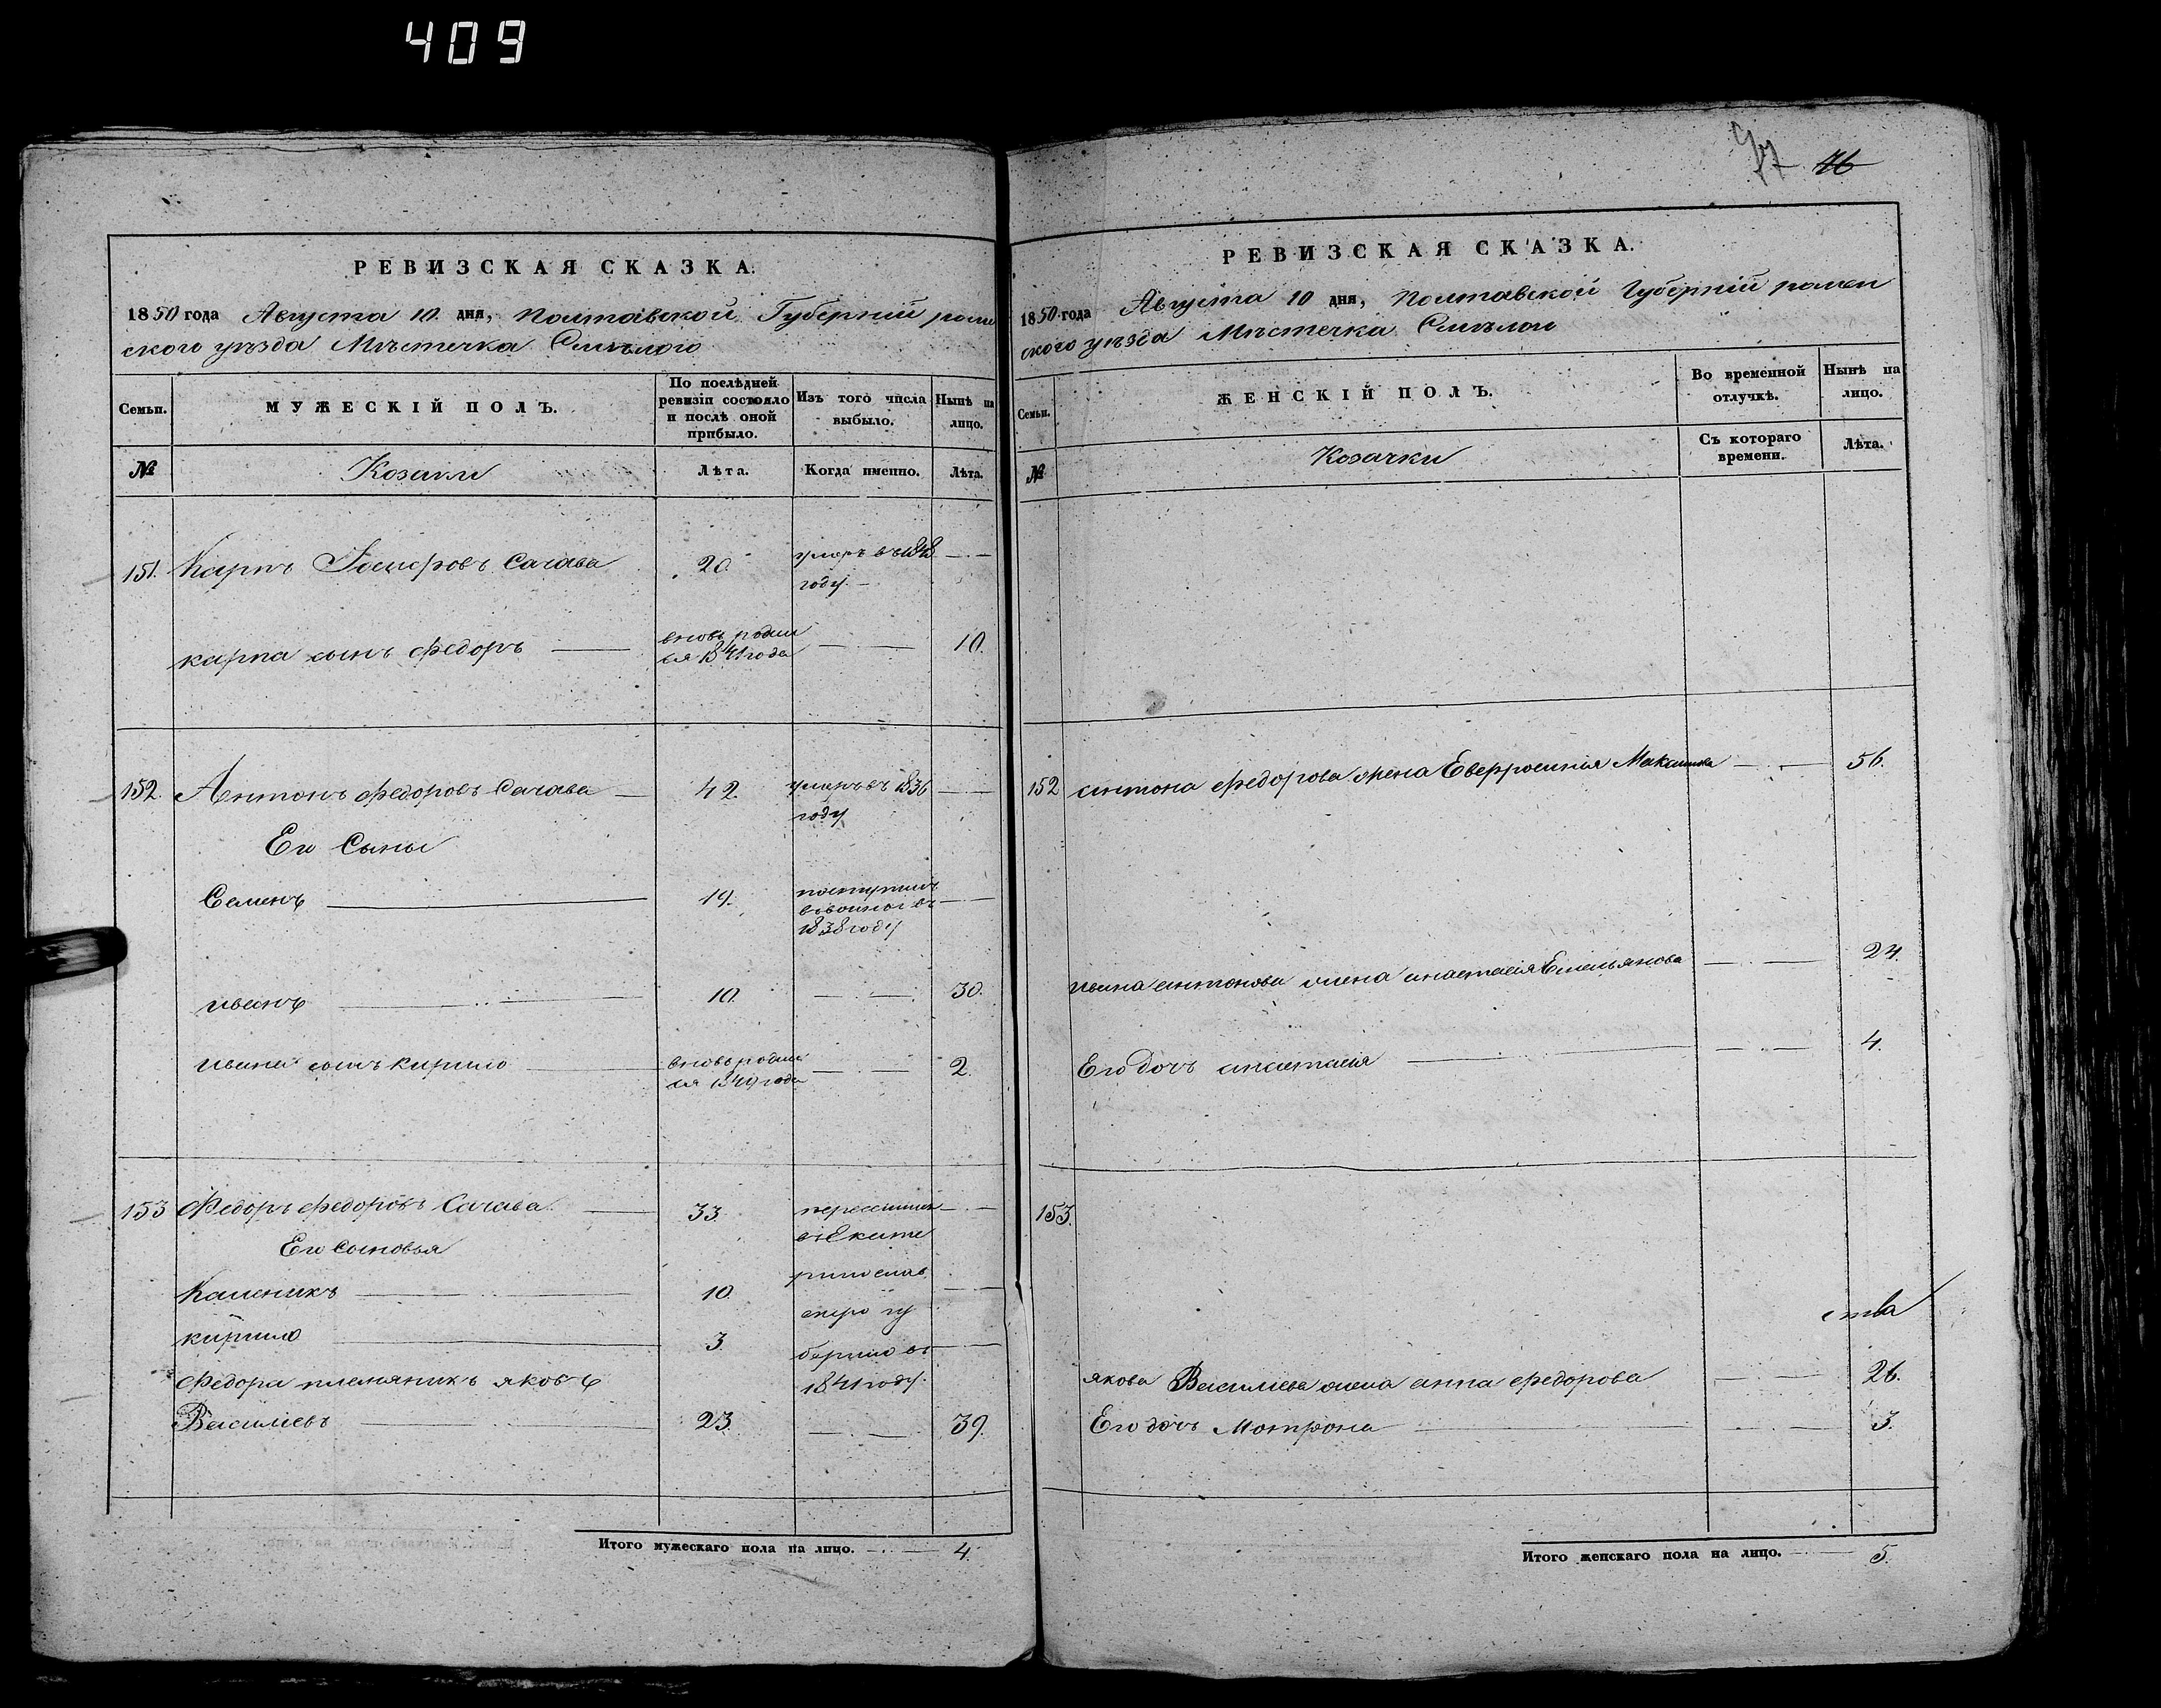 409
РЕВИЗСКАЯ СКАЗКА.
1850 года Августа 10 дня, Полтавской Губерніи ромен
ского уѣзда Мѣстечка Смѣлого
Семьи. МУЖЕСКІЙ ПОЛЪ. По послѣдней ревизіи состояло и послѣ оной прибыло. Изъ того числа выбыло. Нынѣ на лицо.
№ Козаки Лѣта. Когда именно. Лѣта.
151. Карпъ Сачава 20. умеръ въ 1848 году
карпа сынъ Федоръ вновь родил ся 1841 года 10.
152. Антонъ Федоровъ Сачава 42. умеръ въ 1836 году
Его Сыны
Семенъ 19. поступилъ 1838 году
иванъ 10. 30.
ивана сынъ кирило вновь родил ся 1849 года 2.
153 Федоръ Федоровъ Сачава 33. переселились
Его Сыновья въ Екате
Каленикъ 10. ринослав
скую гу
кирило 3. бернію въ
Федора племяникъ яковъ 1841 году.
Василіевъ 23. 39.
Итого мужескаго пола на лицо. 4.
97 76
РЕВИЗСКАЯ СКАЗКА.
1850 года Августа 10 дня, Полтавской Губерніи ромен
ского уѣзда Мѣстечка Смѣлого
Семьи. ЖЕНСКІЙ ПОЛЪ. Во временной отлучкѣ. Нынѣ на лицо.
№ Козачки Съ котораго времени. Лѣта.
152 антона Федорова жена Евфросинія Максимова 56.
ивана антонова жена анастасія Емельянова 24.
Его дочь анастасія 4.
153.
ства
якова Василіева жена анна Федорова 26.
Его дочь Мотрона 3.
Итого женскаго пола на лицо. 5.